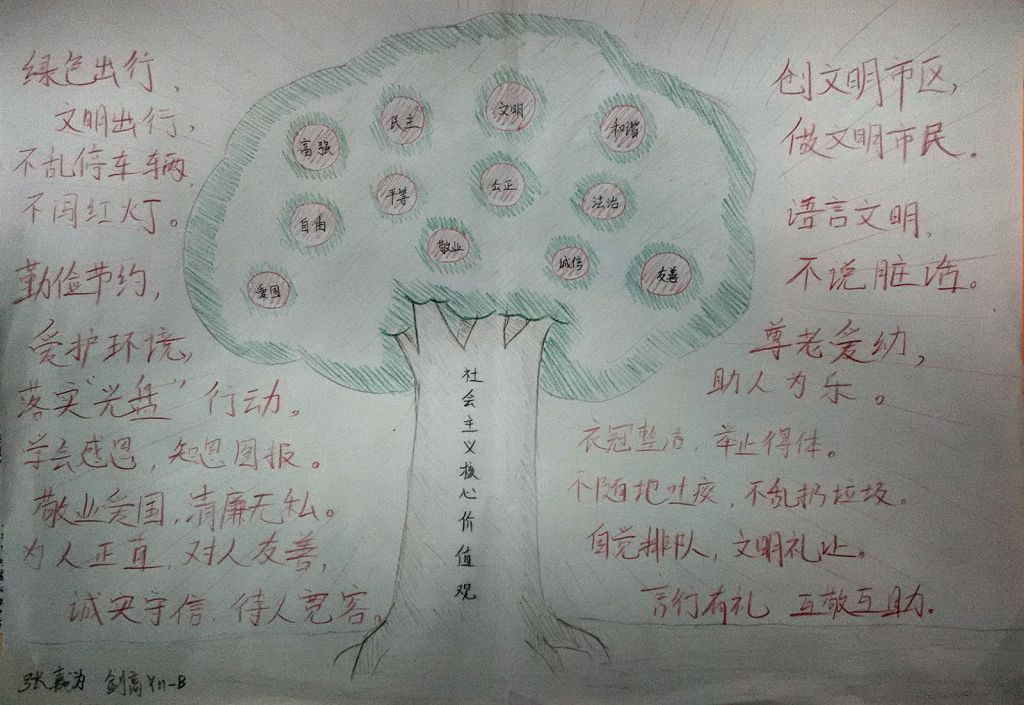 绿色出行，
文明出行，
不乱停车车辆，
不闯红灯。
勤俭节约，
爱护环境，
落实"光盘"行动。
学会感恩，知恩图报。
敬业爱国，清廉无私。
为人正直，对人友善，
诚实守信，待人宽容。
张嘉为
富强
民主
文明
和谐
自由
平等
公正
法治
爱国
敬业
诚信
友善
社会主义核心价值观
创文明市区，
做文明市民。
语言文明，
不说脏话。
尊老爱幼，
助人为乐。
衣冠整洁，举止得体。
不随地吐痰，不乱扔垃圾。
自觉排队，文明礼让。
言行有礼 互敬互助.